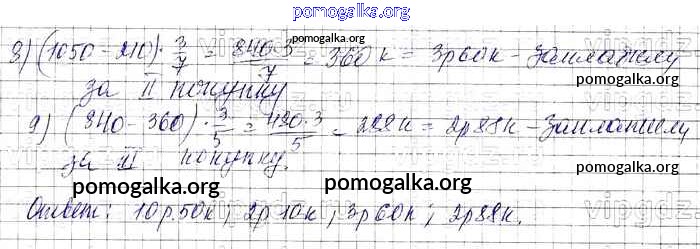 pomogalka.org
8) (1050 - 210) · 3/7 = 840·3/7 = 360 к = 3р 60к - заплатили
pomogalka.org
pomogalka.org
за II покупку
pomogalka.org
9) (840 - 360) · 3/5 = 480·3/5 = 288 к = 2р 88к - заплатили
за III покупку.
pomogalka.org
pomogalka.org
pomogalka.org
Ответ: 10р.50к; 2р 10к; 3р 60к; 2р 88к.